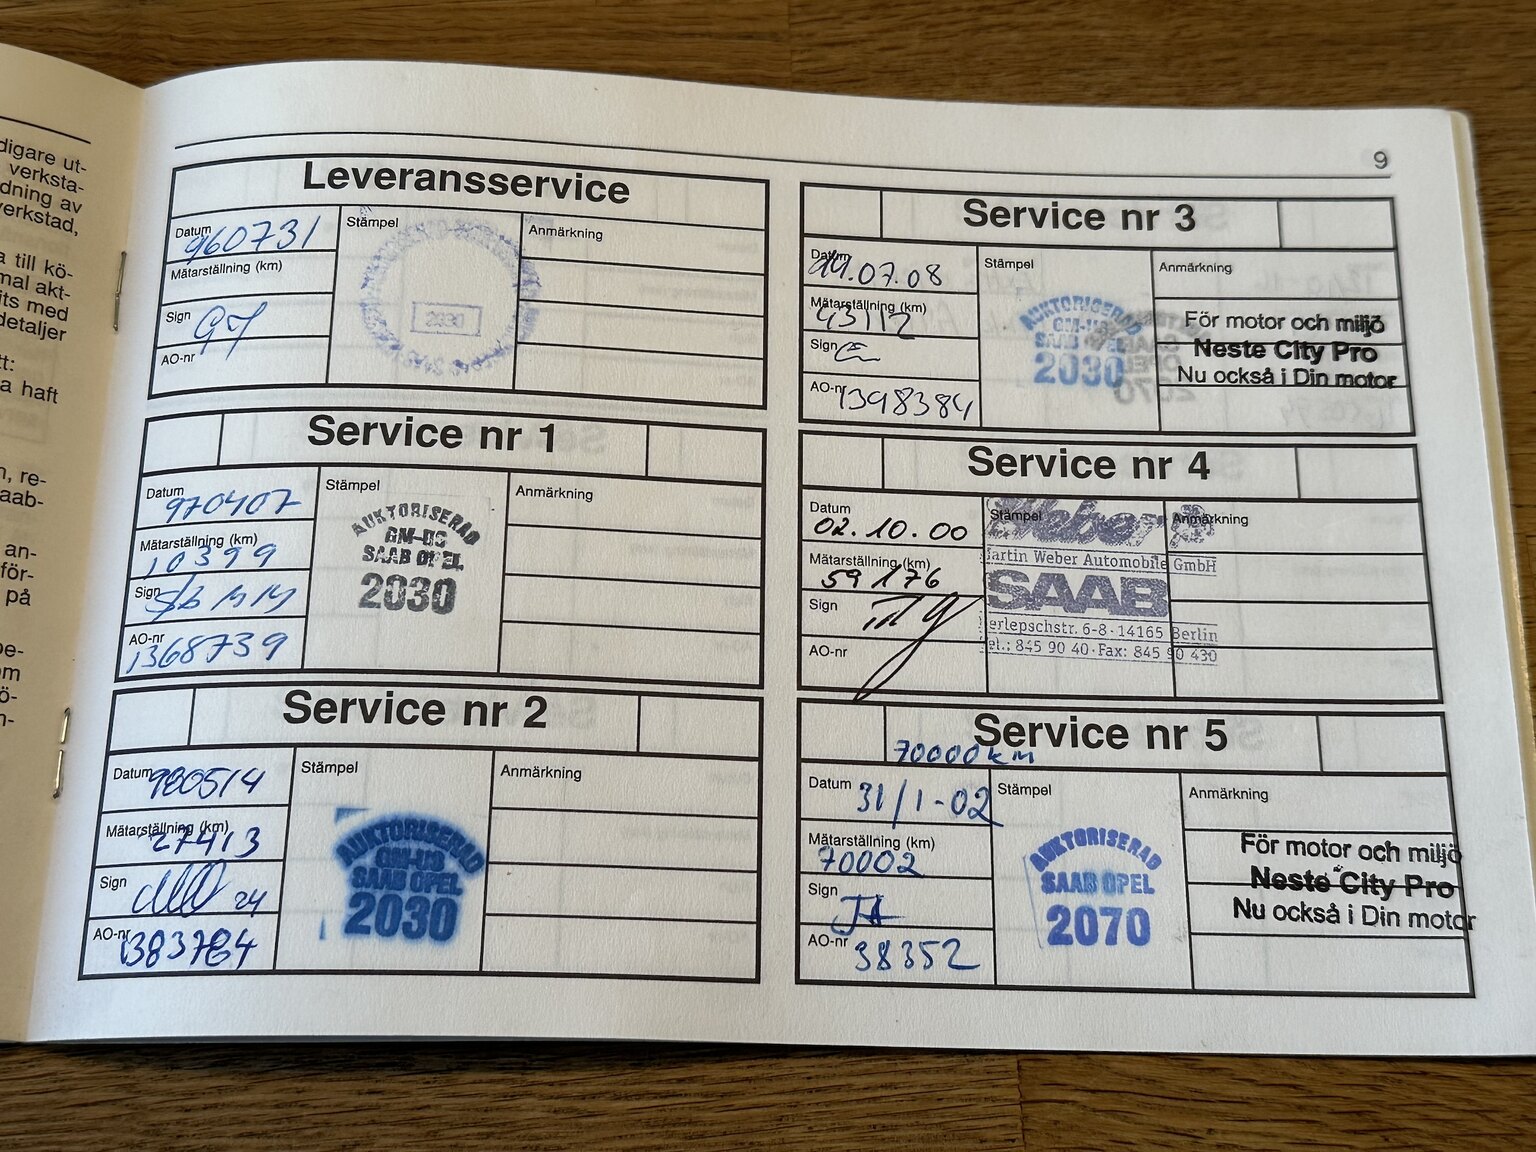 digare ut-
verksta-
dning av
verkstad,
a till kö-
mal akt-
its med
detaljer
tt:
a haft
n, re-
aab-
an-
för-
på
be-
om
ö-
n-
9
Leveransservice
Datum 960731
Stämpel
Anmärkning
Mätarställning (km)
Sign GJ
AO-nr
2030
Service nr 1
Datum 970407
Stämpel
Anmärkning
Mätarställning (km) 10399
Sign
AO-nr 1368739
AUKTORISERAD
GM-US
SAAB OPEL
2030
Service nr 2
Datum 980514
Stämpel
Anmärkning
Mätarställning (km) 27413
Sign 24
AO-nr 1383764
AUKTORISERAD
GM-US
SAAB OPEL
2030
Service nr 3
Datum .07.08
Stämpel
Anmärkning
Mätarställning (km) 43112
Sign
AO-nr 1398384
AUKTORISERAD
GM-US
SAAB OPEL
2030
2070
För motor och miljö
Neste City Pro
Nu också i Din motor
Service nr 4
Datum 02.10.00
Stämpel
Anmärkning
Mätarställning (km) 59176
Sign
AO-nr
Weber
Martin Weber Automobile GmbH
SAAB
erlepschstr. 6-8 · 14165 Berlin
Tel.: 845 90 40 · Fax: 845 90 430
Service nr 5
70000 km
Datum 31/1-02
Stämpel
Anmärkning
Mätarställning (km) 70002
Sign JA
AO-nr 38352
AUKTORISERAD
SAAB OPEL
2070
För motor och miljö
Neste City Pro
Nu också i Din motor